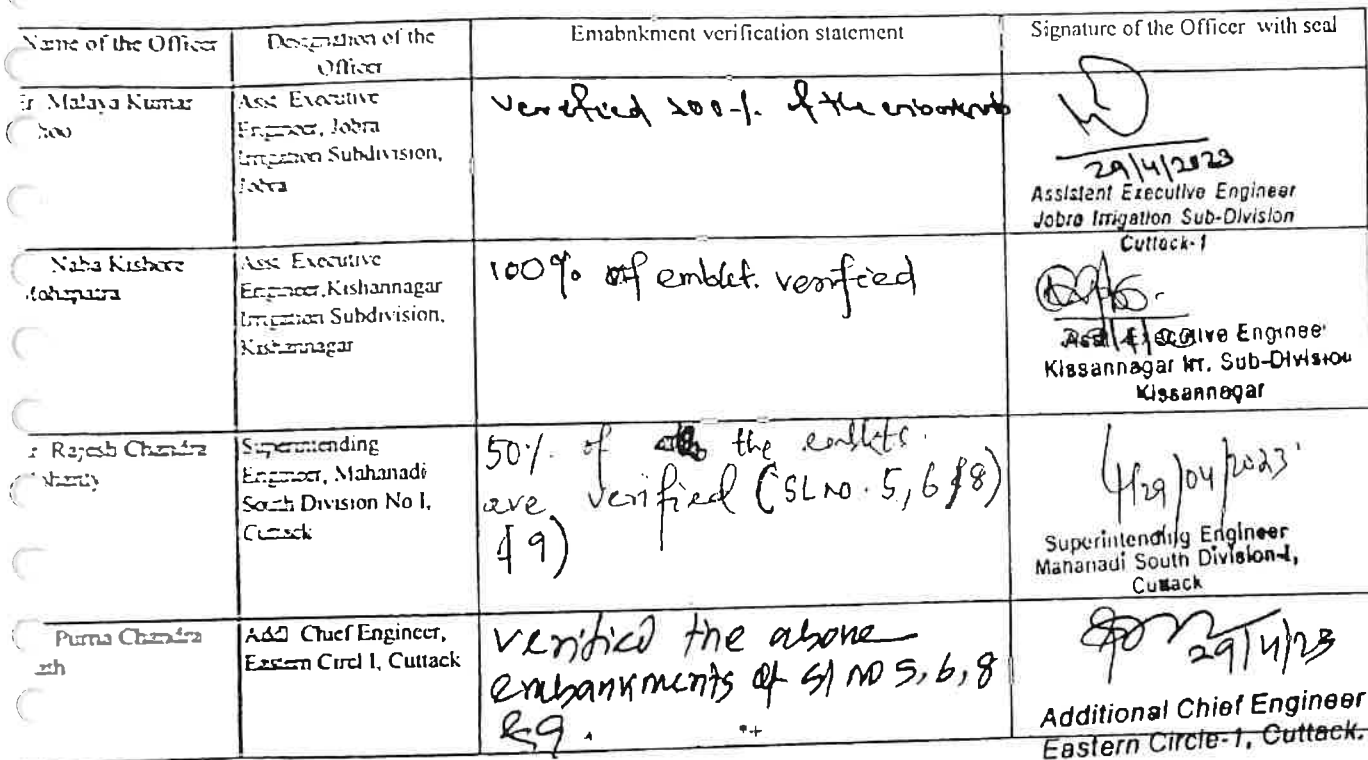 Name of the Officer
Designation of the
Officer
Emabnkment verification statement
Signature of the Officer with seal
Er Malaya Kumar
hoo
Asst Executive
Engineer, Jobra
Irrigation Subdivision,
Jobra
Verified 100% of the
29/4/2023
Assistent Executive Engineer
Jobra Irrigation Sub-Division
Cuttack-1
Naba Kishore
Mohapatra
Asst Executive
Engineer,Kishannagar
Irrigation Subdivision,
Kishannagar
100% of embkt. verified
Asst Executive Engineer
Kissannagar Irr. Sub-Division
Kissannagar
r Rajesh Chandra
ohanty
Superintending
Engineer, Mahanadi
South Division No I,
Cuttack
50% of the embkts.
are verified (SL no. 5, 6 & 8)
& 9)
29/04/2023
Superintending Engineer
Mahanadi South Division-I,
Cuttack
Purna Chandra
ath
Addl Chief Engineer,
Eastern Circl I, Cuttack
Verified the above
embankments of Sl no 5, 6, 8
& 9.
29/4/23
Additional Chief Engineer
Eastern Circle-1, Cuttack.